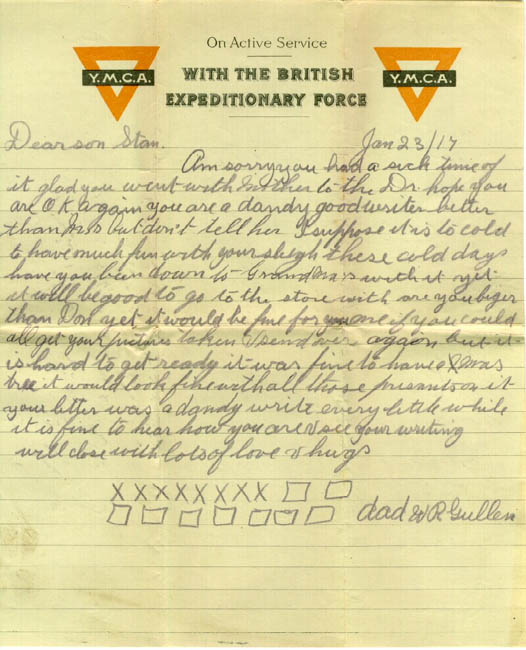 On Active Service
Y.M.C.A. Y.M.C.A.
WITH THE BRITISH
EXPEDITIONARY FORCE
Dear son Stan. Jan 23/17
Am sorry you had a sick time of
it glad you went with to the Dr. hope you
are O.K again you are a dandy good writer better
than but don't tell her I suppose it is to cold
to have much fun with your sleigh these cold days
have you been down to Grandma's with it yet
it will be good to go to the store with are you biger
than Don yet it would be fine for me if you could
all get your pictures taken & send over again but it
is hard to get ready it was fine to have a Xmas
tree it would look fine with all those presants on it
your letter was a dandy write every little while
it is fine to hear how you are & see your writing
will close with lots of love & hugs
X X X X X X X X
dad W R Gullen